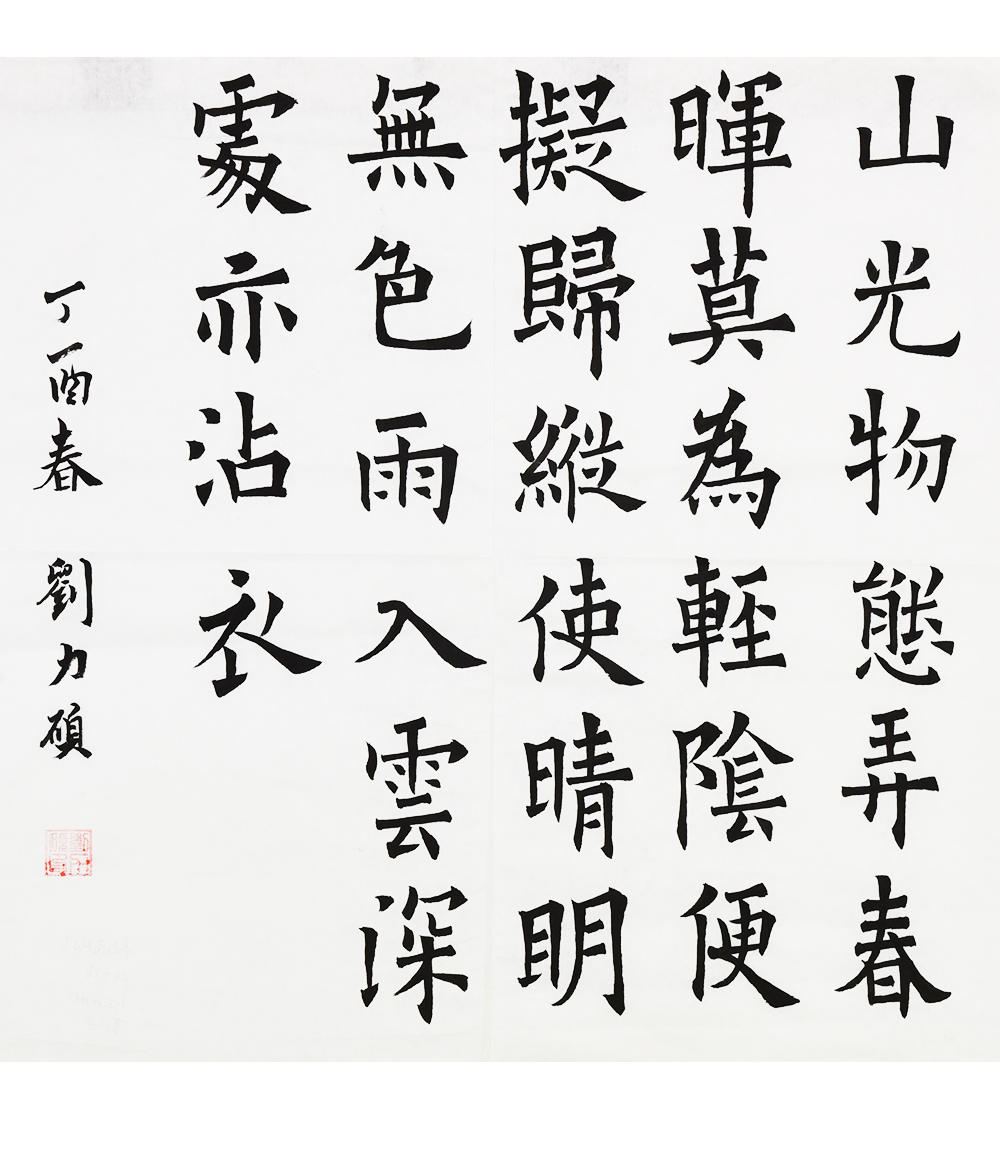 山光物態弄春
暉莫為輕陰便
擬歸縱使晴明
無色雨入雲深
處亦沾衣
丁酉春 劉力碩